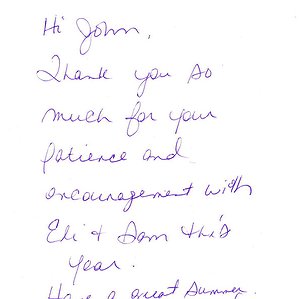 Hi John,
Thank you so
much for your
patience and
encouragement with
Eli + Sam this
year.
Have a great summer.